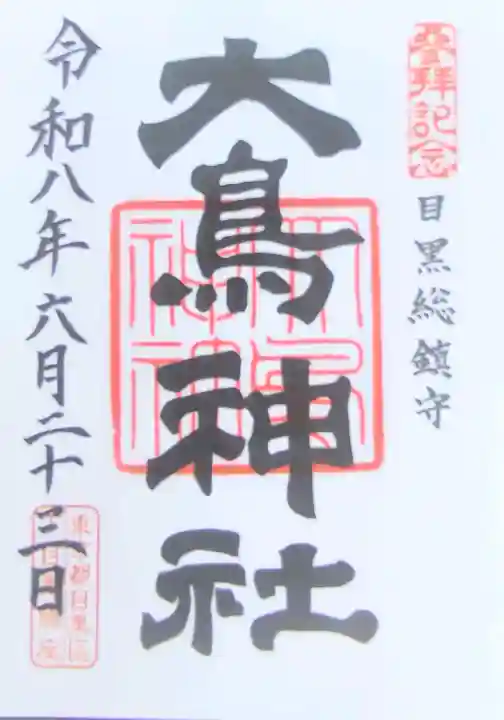 登拝記念
目黒総鎮守
大鳥神社
令和八年六月二十三日
東京都目黒区